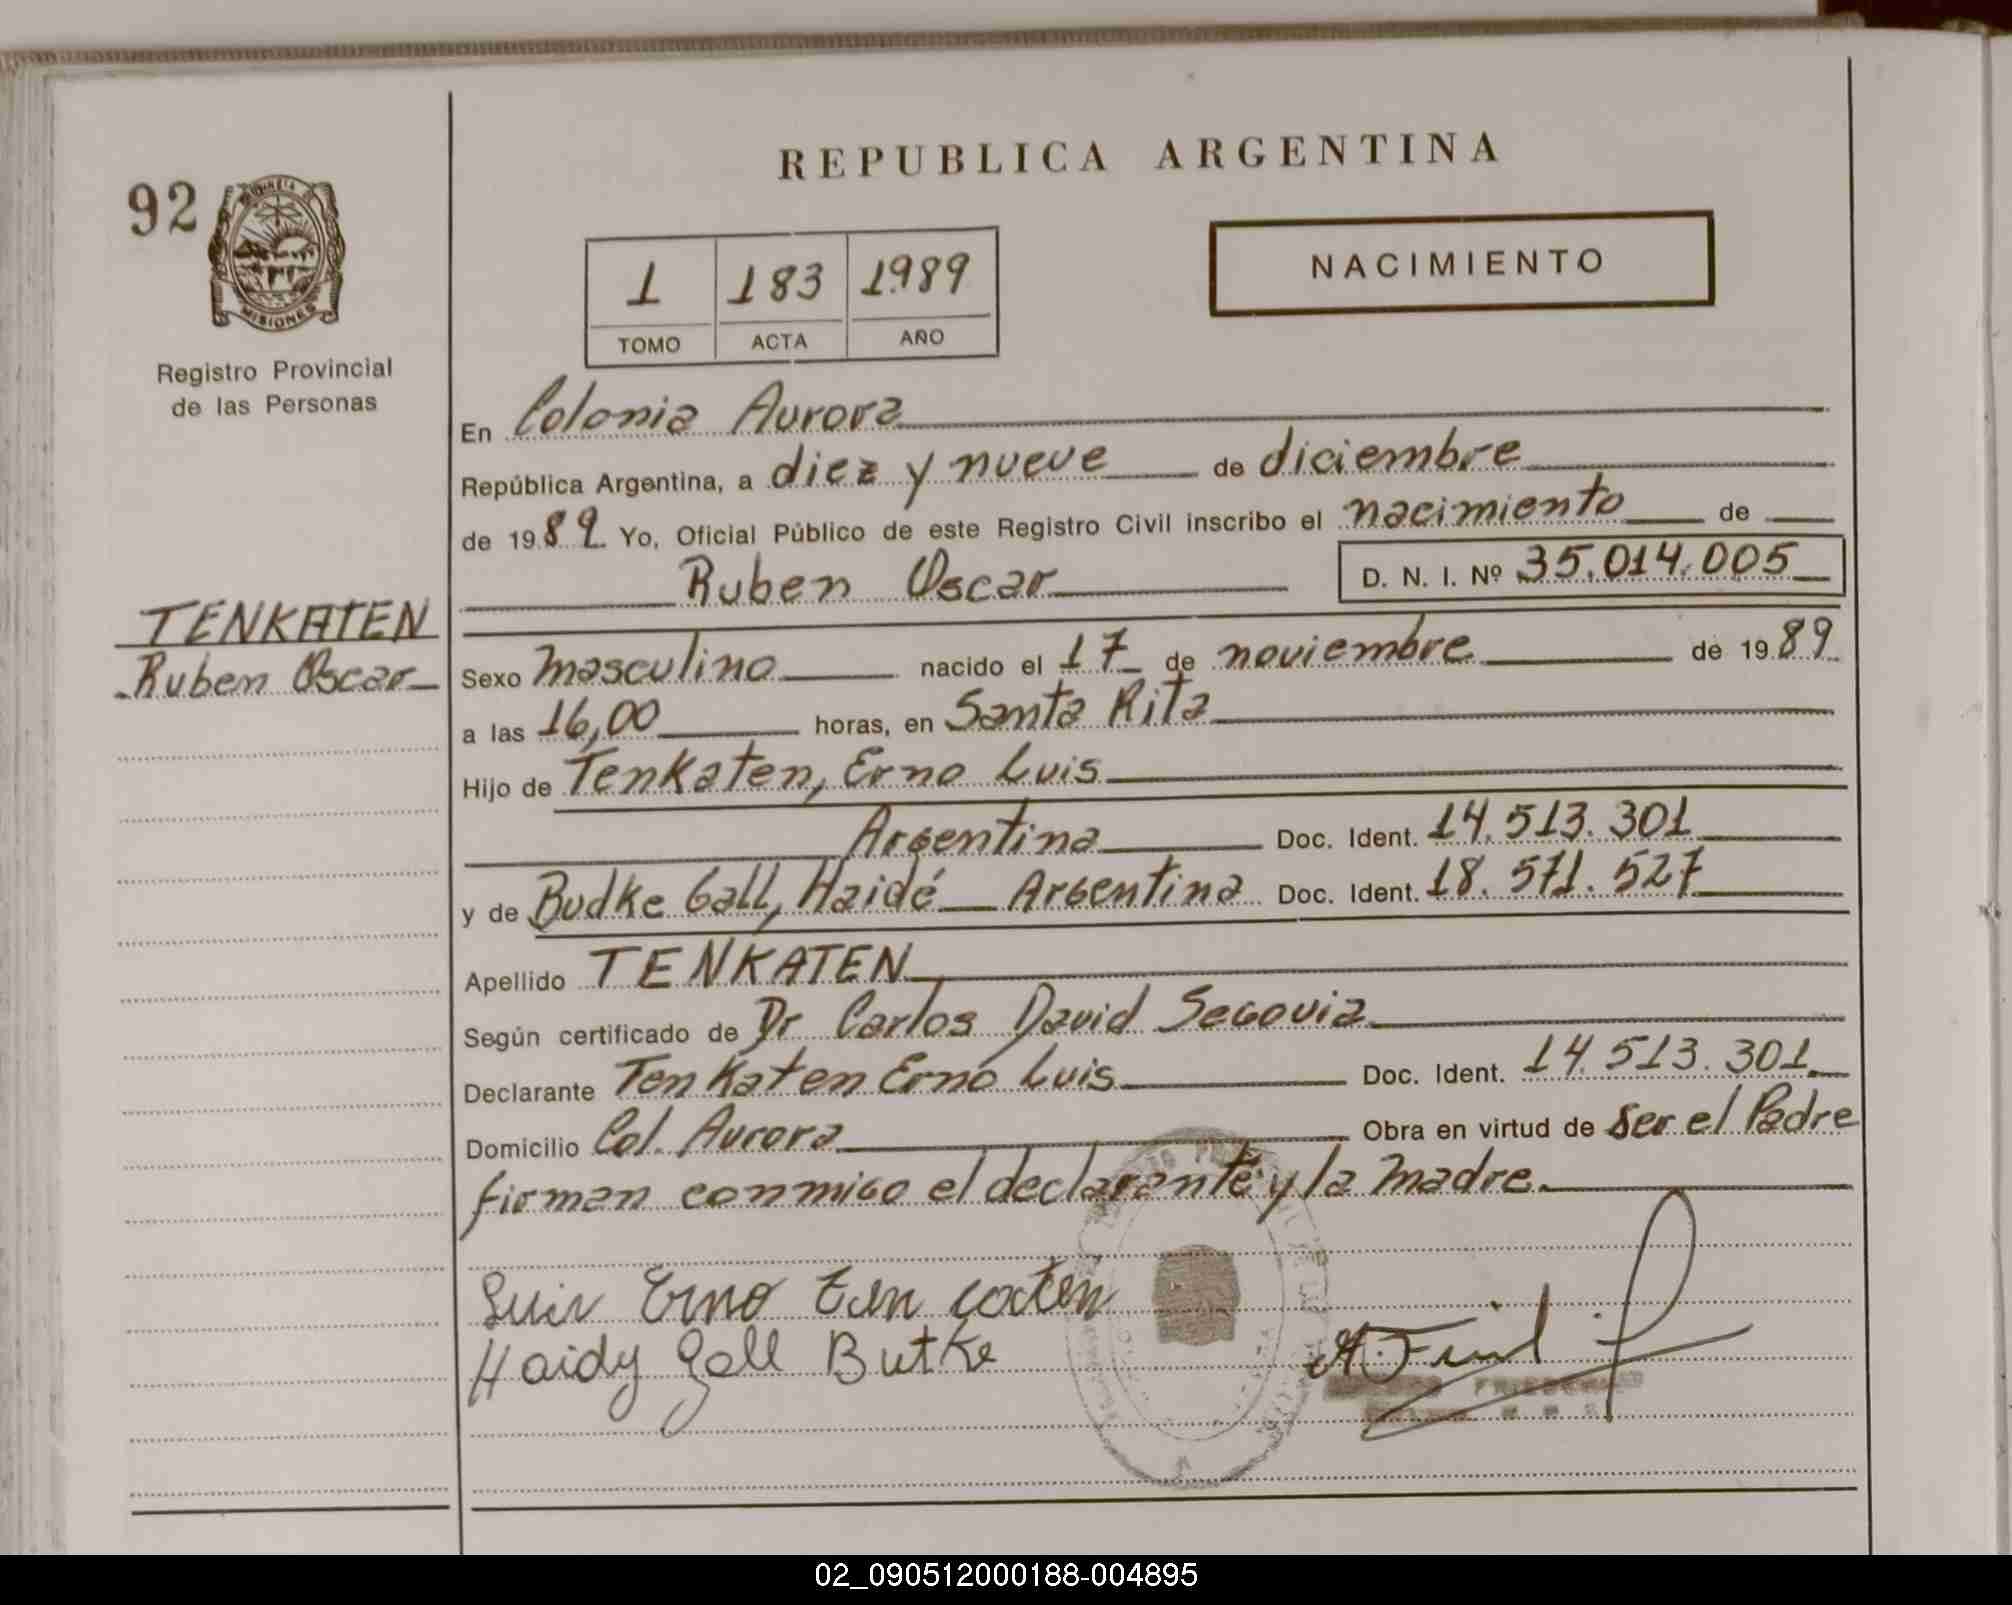 REPUBLICA ARGENTINA
92
MISIONES
Registro Provincial
de las Personas
NACIMIENTO
1 183 1989
TOMO ACTA AÑO
En Colonia Aurora
República Argentina, a diez y nueve de diciembre
de 1989 Yo, Oficial Público de este Registro Civil inscribo el nacimiento de
Ruben Oscar D. N. I. Nº 35.014.005
TENKATEN
Ruben Oscar
Sexo masculino nacido el 17 de noviembre de 1989
a las 16,00 horas, en Santa Rita
Hijo de Tenkaten, Erno Luis
Argentina Doc. Ident. 14.513.301
y de Budke Gall, Haidé Argentina Doc. Ident. 18.571.527
Apellido TENKATEN
Según certificado de Dr Carlos David Segovia
Declarante Tenkaten Erno Luis Doc. Ident. 14.513.301
Domicilio Col. Aurora Obra en virtud de ser el Padre
firman conmigo el declarante y la madre.
Luis Erno Ten caten
Haidy Gall Butke
02_090512000188-004895